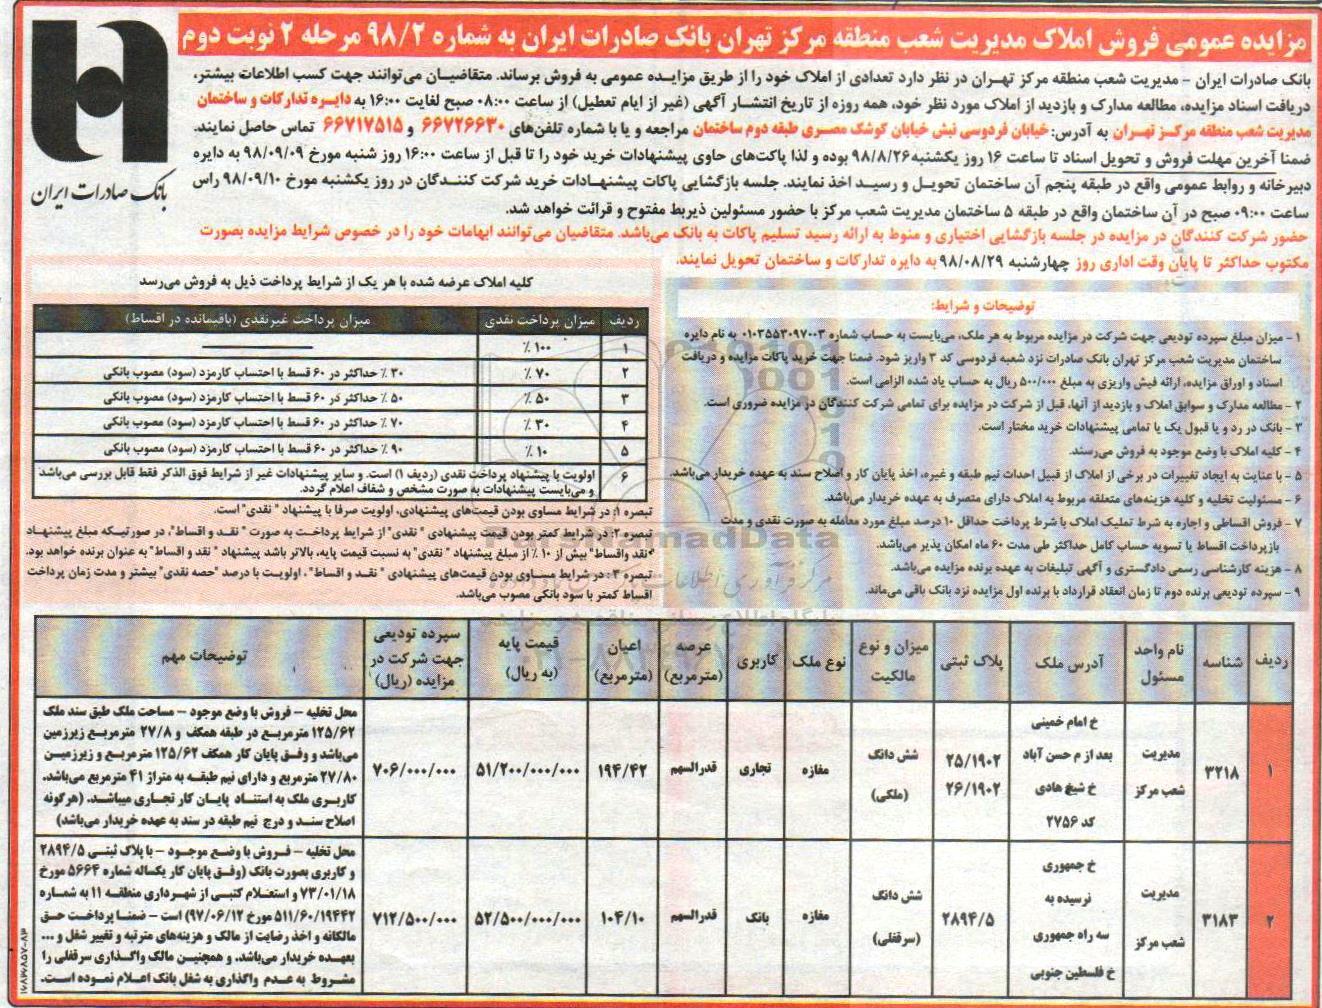 مزایده عمومی فروش املاک مدیریت شعب منطقه مرکز تهران بانک صادرات ایران به شماره ۹۸/۲ مرحله ۲ نوبت دوم
بانک صادرات ایران
بانک صادرات ایران - مدیریت شعب منطقه مرکز تهران در نظر دارد تعدادی از املاک خود را از طریق مزایده عمومی به فروش برساند. متقاضیان می‌توانند جهت کسب اطلاعات بیشتر،
دریافت اسناد مزایده، مطالعه مدارک و بازدید از املاک مورد نظر خود، همه روزه از تاریخ انتشار آگهی (غیر از ایام تعطیل) از ساعت ۰۸:۰۰ صبح لغایت ۱۶:۰۰ به دایره تدارکات و ساختمان
مدیریت شعب منطقه مرکز تهران به آدرس: خیابان فردوسی نبش خیابان کوشک مصری طبقه دوم ساختمان مراجعه و یا با شماره تلفن‌های ۶۶۷۲۶۶۳۰ و ۶۶۷۱۷۵۱۵ تماس حاصل نمایند.
ضمنا آخرین مهلت فروش و تحویل اسناد تا ساعت ۱۶ روز یکشنبه ۹۸/۸/۲۶ بوده و لذا پاکت‌های حاوی پیشنهادات خرید خود را تا قبل از ساعت ۱۶:۰۰ روز شنبه مورخ ۹۸/۰۹/۰۹ به دایره
دبیرخانه و روابط عمومی واقع در طبقه پنجم آن ساختمان تحویل و رسید اخذ نمایند. جلسه بازگشایی پاکات پیشنهادات خرید شرکت کنندگان در روز یکشنبه مورخ ۹۸/۰۹/۱۰ راس
ساعت ۰۹:۰۰ صبح در آن ساختمان واقع در طبقه ۵ ساختمان مدیریت شعب مرکز با حضور مسئولین ذیربط مفتوح و قرائت خواهد شد.
حضور شرکت کنندگان در مزایده در جلسه بازگشایی اختیاری و منوط به ارائه رسید تسلیم پاکات به بانک می‌باشد. متقاضیان می‌توانند ابهامات خود را در خصوص شرایط مزایده بصورت
مکتوب حداکثر تا پایان وقت اداری روز چهارشنبه ۹۸/۰۸/۲۹ به دایره تدارکات و ساختمان تحویل نمایند.
توضیحات و شرایط:
۱ - میزان مبلغ سپرده تودیعی جهت شرکت در مزایده مربوط به هر ملک، می‌بایست به حساب شماره ۰۱۰۳۵۵۳۰۹۷۰۰۳ به نام دایره
ساختمان مدیریت شعب مرکز تهران بانک صادرات نزد شعبه فردوسی کد ۳ واریز شود. ضمنا جهت خرید پاکات مزایده و دریافت
اسناد و اوراق مزایده، ارائه فیش واریزی به مبلغ ۵۰۰/۰۰۰ ریال به حساب یاد شده الزامی است.
۲ - مطالعه مدارک و سوابق املاک و بازدید از آنها، قبل از شرکت در مزایده برای تمامی شرکت کنندگان در مزایده ضروری است.
۳ - بانک در رد و یا قبول یک یا تمامی پیشنهادات خرید مختار است.
۴ - کلیه املاک با وضع موجود به فروش می‌رسند.
۵ - با عنایت به ایجاد تغییرات در برخی از املاک از قبیل احداث نیم طبقه و غیره، اخذ پایان کار و اصلاح سند به عهده خریدار می‌باشد.
۶ - مسئولیت تخلیه و کلیه هزینه‌های متعلقه مربوط به املاک دارای متصرف به عهده خریدار می‌باشد.
۷ - فروش اقساطی و اجاره به شرط تملیک املاک با شرط پرداخت حداقل ۱۰ درصد مبلغ مورد معامله به صورت نقدی و مدت
بازپرداخت اقساط یا تسویه حساب کامل حداکثر طی مدت ۶۰ ماه امکان پذیر می‌باشد.
۸ - هزینه کارشناسی رسمی دادگستری و آگهی تبلیغات به عهده برنده مزایده می‌باشد.
۹ - سپرده تودیعی برنده دوم تا زمان انعقاد قرارداد با برنده اول مزایده نزد بانک باقی می‌ماند.
کلیه املاک عرضه شده با هر یک از شرایط پرداخت ذیل به فروش می‌رسد
ردیف میزان پرداخت نقدی میزان پرداخت غیرنقدی (باقیمانده در اقساط)
۱ ۱۰۰ ٪
۲ ۷۰ ٪ ۳۰ ٪ حداکثر در ۶۰ قسط با احتساب کارمزد (سود) مصوب بانکی
۳ ۵۰ ٪ ۵۰ ٪ حداکثر در ۶۰ قسط با احتساب کارمزد (سود) مصوب بانکی
۴ ۳۰ ٪ ۷۰ ٪ حداکثر در ۶۰ قسط با احتساب کارمزد (سود) مصوب بانکی
۵ ۱۰ ٪ ۹۰ ٪ حداکثر در ۶۰ قسط با احتساب کارمزد (سود) مصوب بانکی
۶ اولویت با پیشنهاد پرداخت نقدی (ردیف ۱) است. و سایر پیشنهادات غیر از شرایط فوق الذکر فقط قابل بررسی می‌باشد
و می‌بایست پیشنهادات به صورت مشخص و شفاف اعلام گردد.
تبصره ۱: در شرایط مساوی بودن قیمت‌های پیشنهادی، اولویت صرفا با پیشنهاد " نقدی" است.
تبصره ۲: در شرایط کمتر بودن قیمت پیشنهادی " نقدی" از شرایط پرداخت به صورت " نقد و اقساط"، در صورتیکه مبلغ پیشنهاد
"نقد واقساط" بیش از ۱۰ ٪ از مبلغ پیشنهاد " نقدی" به نسبت قیمت پایه، بالاتر باشد پیشنهاد " نقد و اقساط" به عنوان برنده خواهد بود.
تبصره ۳: در شرایط مساوی بودن قیمت‌های پیشنهادی " نقد و اقساط"، اولویت با درصد "حصه نقدی" بیشتر و مدت زمان پرداخت
اقساط کمتر با سود بانکی مصوب می‌باشد.
ردیف شناسه نام واحد مسئول آدرس ملک پلاک ثبتی میزان و نوع مالکیت نوع ملک کاربری عرصه (مترمربع) اعیان (مترمربع) قیمت پایه (به ریال) سپرده تودیعی جهت شرکت در مزایده (ریال) توضیحات مهم
۱ ۳۲۱۸ مدیریت شعب مرکز خ امام خمینی بعد از م حسن آباد خ شیخ هادی کد ۲۷۵۶ ۲۵/۱۹۰۲ ۲۶/۱۹۰۲ شش دانگ (ملکی) مغازه تجاری قدرالسهم ۱۹۴/۴۲ ۵۱/۲۰۰/۰۰۰/۰۰۰ ۷۰۶/۰۰۰/۰۰۰
محل تخلیه - فروش با وضع موجود - مساحت ملک طبق سند ملک
۱۲۵/۶۲ مترمربع در طبقه همکف و ۲۷/۸ مترمربع زیرزمین
می‌باشد و وفق پایان کار همکف ۱۲۵/۶۲ مترمربع و زیرزمین
۲۷/۸۰ مترمربع و دارای نیم طبقه به متراژ ۴۱ مترمربع می‌باشد.
کاربری ملک به استناد پایان کار تجاری میباشد. (هرگونه
اصلاح سند و درج نیم طبقه در سند به عهده خریدار می‌باشد)
۲ ۳۱۸۳ مدیریت شعب مرکز خ جمهوری نرسیده به سه راه جمهوری خ فلسطین جنوبی ۲۸۹۴/۵ شش دانگ (سرقفلی) مغازه بانک قدرالسهم ۱۰۴/۱۰ ۵۲/۵۰۰/۰۰۰/۰۰۰ ۷۱۲/۵۰۰/۰۰۰
محل تخلیه - فروش با وضع موجود - با پلاک ثبتی ۲۸۹۴/۵
و کاربری بصورت بانک (وفق پایان کار یکساله شماره ۵۶۶۴ مورخ
۷۳/۰۱/۱۸ و استعلام کتبی از شهرداری منطقه ۱۱ به شماره
۵۱۱/۶۰/۱۹۴۴۲ مورخ ۹۷/۰۶/۱۲) است - ضمنا پرداخت حق
مالکانه و اخذ رضایت از مالک و هزینه‌های مترتبه و تغییر شغل و ...
بعهده خریدار می‌باشد. و همچنین مالک واگذاری سرقفلی را
مشروط به عدم واگذاری به شغل بانک اعلام نموده است.